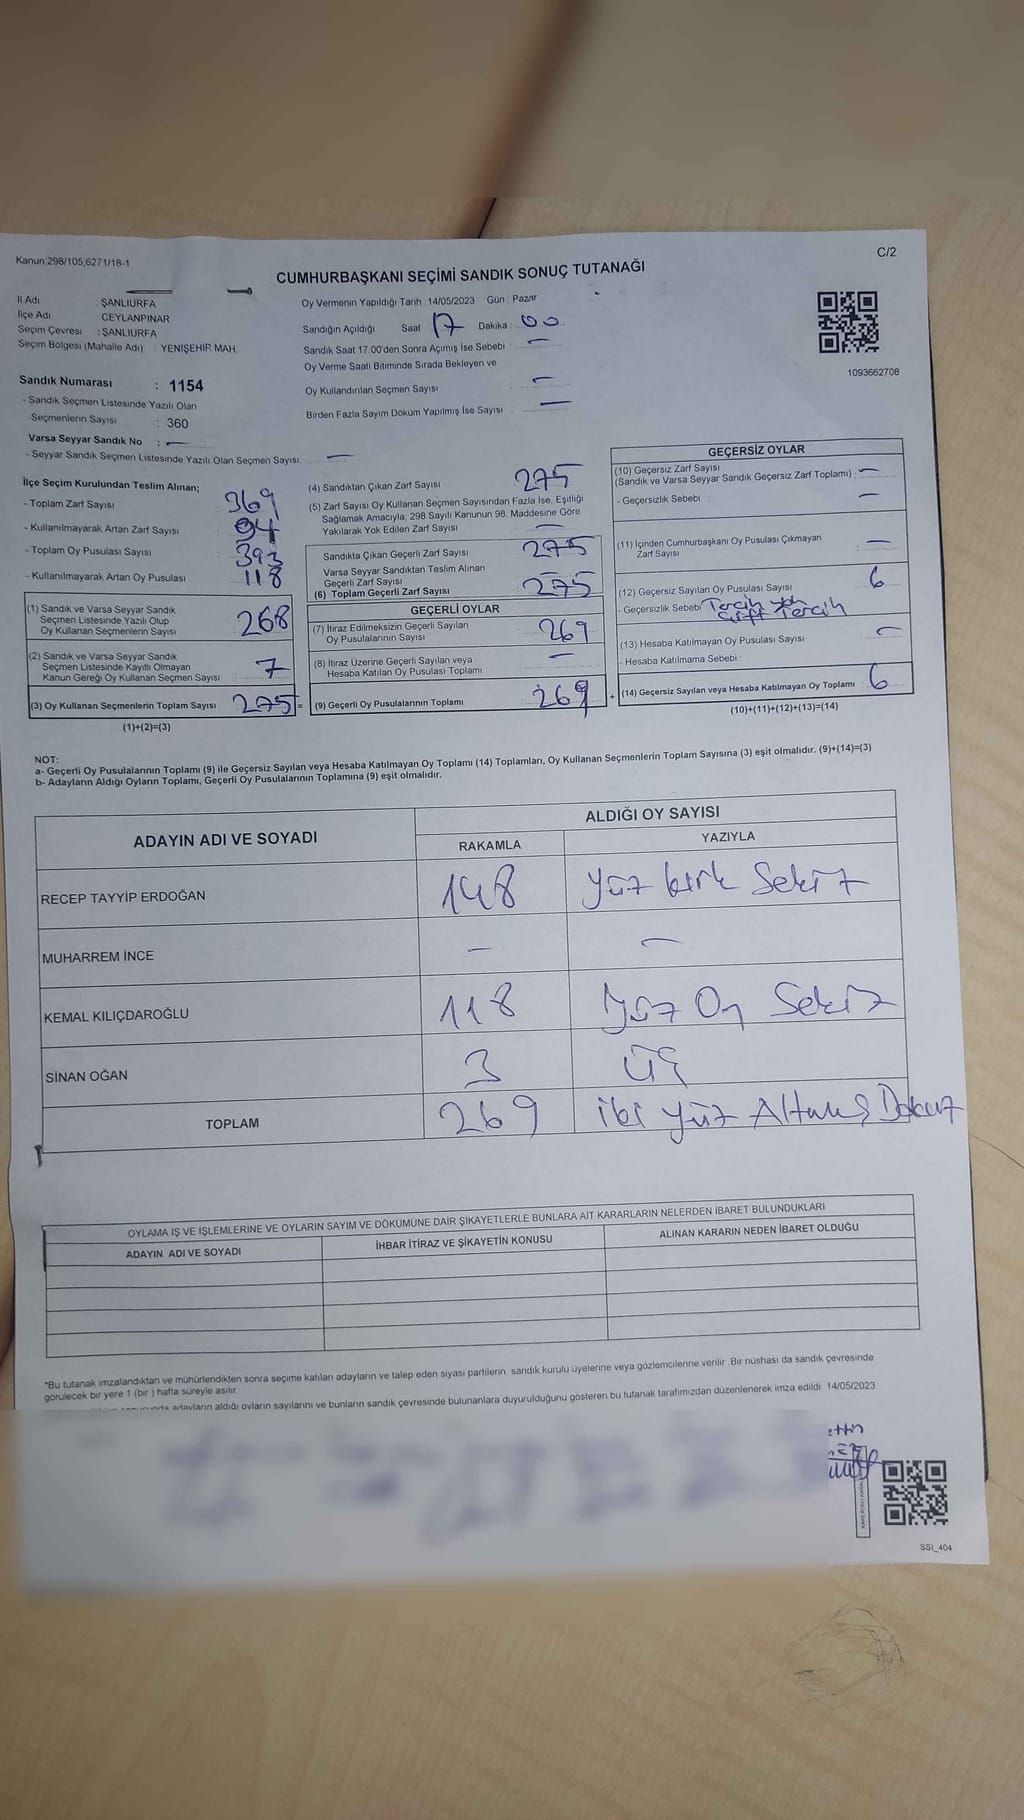 Kanun;298/105;6271/18-1
C/2
CUMHURBAŞKANI SEÇİMİ SANDIK SONUÇ TUTANAĞI
İl Adı : ŞANLIURFA
İlçe Adı CEYLANPINAR
Seçim Çevresi : ŞANLIURFA
Seçim Bölgesi (Mahalle Adı) : YENİŞEHİR MAH.
Sandık Numarası : 1154
- Sandık Seçmen Listesinde Yazılı Olan
Seçmenlerin Sayısı : 360
Varsa Seyyar Sandık No : —
- Seyyar Sandık Seçmen Listesinde Yazılı Olan Seçmen Sayısı: —
Oy Vermenin Yapıldığı Tarih : 14/05/2023 Gün : Pazar
Sandığın Açıldığı Saat 17 Dakika : 00
Sandık Saat 17.00'den Sonra Açılmış İse Sebebi —
Oy Verme Saati Bitiminde Sırada Bekleyen ve
Oy Kullandırılan Seçmen Sayısı : —
Birden Fazla Sayım Döküm Yapılmış İse Sayısı : —
1093662708
İlçe Seçim Kurulundan Teslim Alınan;
- Toplam Zarf Sayısı : 369
- Kullanılmayarak Artan Zarf Sayısı : 94
- Toplam Oy Pusulası Sayısı : 393
- Kullanılmayarak Artan Oy Pusulası : 118
(1) Sandık ve Varsa Seyyar Sandık
Seçmen Listesinde Yazılı Olup
Oy Kullanan Seçmenlerin Sayısı : 268
(2) Sandık ve Varsa Seyyar Sandık
Seçmen Listesinde Kayıtlı Olmayan
Kanun Gereği Oy Kullanan Seçmen Sayısı : 7
(3) Oy Kullanan Seçmenlerin Toplam Sayısı : 275 =
(1)+(2)=(3)
(4) Sandıktan Çıkan Zarf Sayısı : 275
(5) Zarf Sayısı Oy Kullanan Seçmen Sayısından Fazla İse, Eşitliği
Sağlamak Amacıyla, 298 Sayılı Kanunun 98. Maddesine Göre
Yakılarak Yok Edilen Zarf Sayısı : —
Sandıkta Çıkan Geçerli Zarf Sayısı : 275
Varsa Seyyar Sandıktan Teslim Alınan
Geçerli Zarf Sayısı : —
(6) Toplam Geçerli Zarf Sayısı : 275
GEÇERLİ OYLAR
(7) İtiraz Edilmeksizin Geçerli Sayılan
Oy Pusulalarının Sayısı : 269
(8) İtiraz Üzerine Geçerli Sayılan veya
Hesaba Katılan Oy Pusulası Toplamı : —
(9) Geçerli Oy Pusulalarının Toplamı : 269 +
GEÇERSİZ OYLAR
(10) Geçersiz Zarf Sayısı
(Sandık ve Varsa Seyyar Sandık Geçersiz Zarf Toplamı) : —
- Geçersizlik Sebebi : —
(11) İçinden Cumhurbaşkanı Oy Pusulası Çıkmayan
Zarf Sayısı : —
(12) Geçersiz Sayılan Oy Pusulası Sayısı : 6
- Geçersizlik Sebebi Tercih yok
Çift Tercih
(13) Hesaba Katılmayan Oy Pusulası Sayısı : —
- Hesaba Katılmama Sebebi :
(14) Geçersiz Sayılan veya Hesaba Katılmayan Oy Toplamı : 6
(10)+(11)+(12)+(13)=(14)
NOT:
a- Geçerli Oy Pusulalarının Toplamı (9) ile Geçersiz Sayılan veya Hesaba Katılmayan Oy Toplamı (14) Toplamları, Oy Kullanan Seçmenlerin Toplam Sayısına (3) eşit olmalıdır. (9)+(14)=(3)
b- Adayların Aldığı Oyların Toplamı, Geçerli Oy Pusulalarının Toplamına (9) eşit olmalıdır.
ADAYIN ADI VE SOYADI
ALDIĞI OY SAYISI
RAKAMLA YAZIYLA
RECEP TAYYİP ERDOĞAN 148 Yüz kırk Sekiz
MUHARREM İNCE — —
KEMAL KILIÇDAROĞLU 118 Yüz On Sekiz
SİNAN OĞAN 3 Üç
TOPLAM 269 iki yüz Altmış Dokuz
OYLAMA İŞ VE İŞLEMLERİNE VE OYLARIN SAYIM VE DÖKÜMÜNE DAİR ŞİKAYETLERLE BUNLARA AİT KARARLARIN NELERDEN İBARET BULUNDUKLARI
ADAYIN ADI VE SOYADI İHBAR İTİRAZ VE ŞİKAYETİN KONUSU ALINAN KARARIN NEDEN İBARET OLDUĞU
*Bu tutanak imzalandıktan ve mühürlendikten sonra seçime katılan adayların ve talep eden siyasi partilerin sandık kurulu üyelerine veya gözlemcilerine verilir. Bir nüshası da sandık çevresinde
görülecek bir yere 1 (bir) hafta süreyle asılır.
adayların aldığı oyların sayılarını ve bunların sandık çevresinde bulunanlara duyurulduğunu gösteren bu tutanak tarafımızdan düzenlenerek imza edildi. 14/05/2023
SSI_404